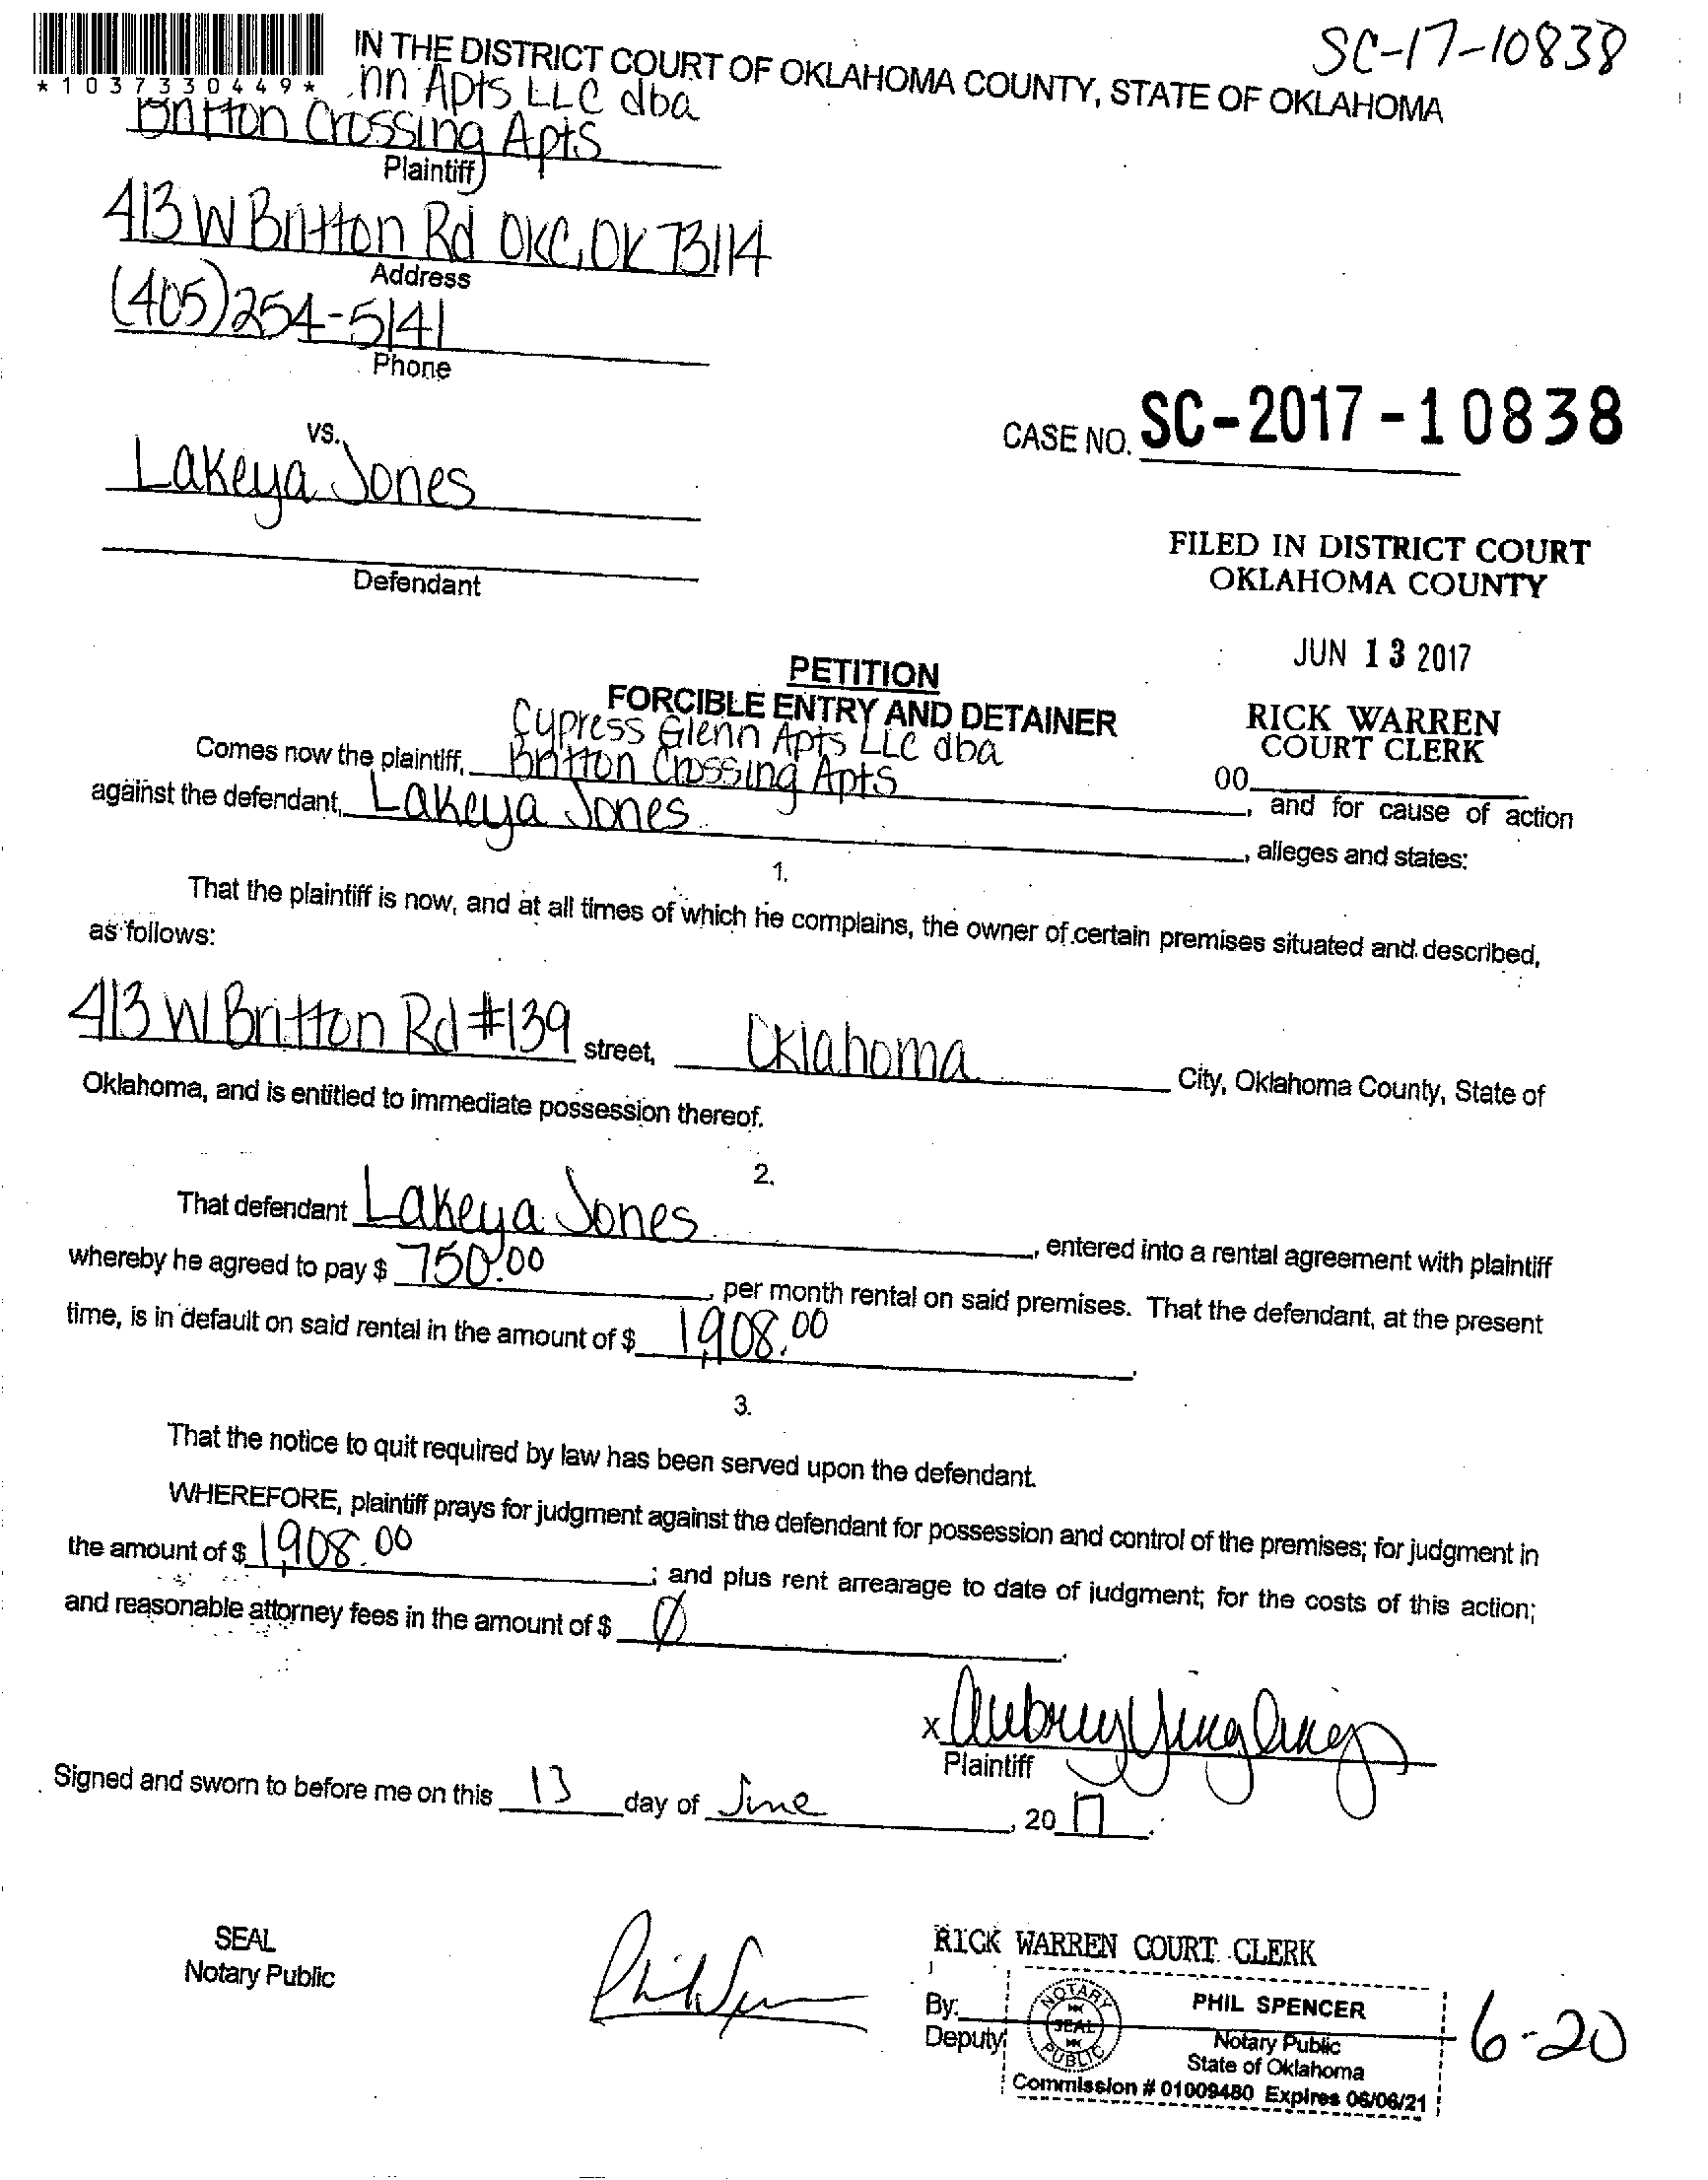 SC-17-10838
IN THE DISTRICT COURT OF OKLAHOMA COUNTY, STATE OF OKLAHOMA
*1037330449*
nn Apts LLC dba
Britton Crossing Apts
Plaintiff
413 W Britton Rd OKC, OK 73114
Address
(405)254-5141
Phone
vs.
CASE NO. SC-2017-10838
Lakeya Jones
Defendant
FILED IN DISTRICT COURT
OKLAHOMA COUNTY
JUN 13 2017
RICK WARREN
COURT CLERK
00
PETITION
FORCIBLE ENTRY AND DETAINER
Cypress Glenn Apts LLC dba
Comes now the plaintiff, Britton Crossing Apts, and for cause of action
against the defendant, Lakeya Jones, alleges and states:
1.
That the plaintiff is now, and at all times of which he complains, the owner of certain premises situated and described,
as follows:
413 W Britton Rd #139 street, Oklahoma City, Oklahoma County, State of
Oklahoma, and is entitled to immediate possession thereof.
2.
That defendant Lakeya Jones, entered into a rental agreement with plaintiff
whereby he agreed to pay $ 750.00, per month rental on said premises. That the defendant, at the present
time, is in default on said rental in the amount of $ 1,908.00.
3.
That the notice to quit required by law has been served upon the defendant.
WHEREFORE, plaintiff prays for judgment against the defendant for possession and control of the premises; for judgment in
the amount of $ 1,908.00; and plus rent arrearage to date of judgment; for the costs of this action;
and reasonable attorney fees in the amount of $ Ø.
x
Plaintiff
Signed and sworn to before me on this 13 day of June, 2017.
SEAL
Notary Public
RICK WARREN COURT CLERK
By:
Deputy
NOTARY
SEAL
PUBLIC
PHIL SPENCER
Notary Public
State of Oklahoma
Commission # 01009480 Expires 06/06/21
6-20